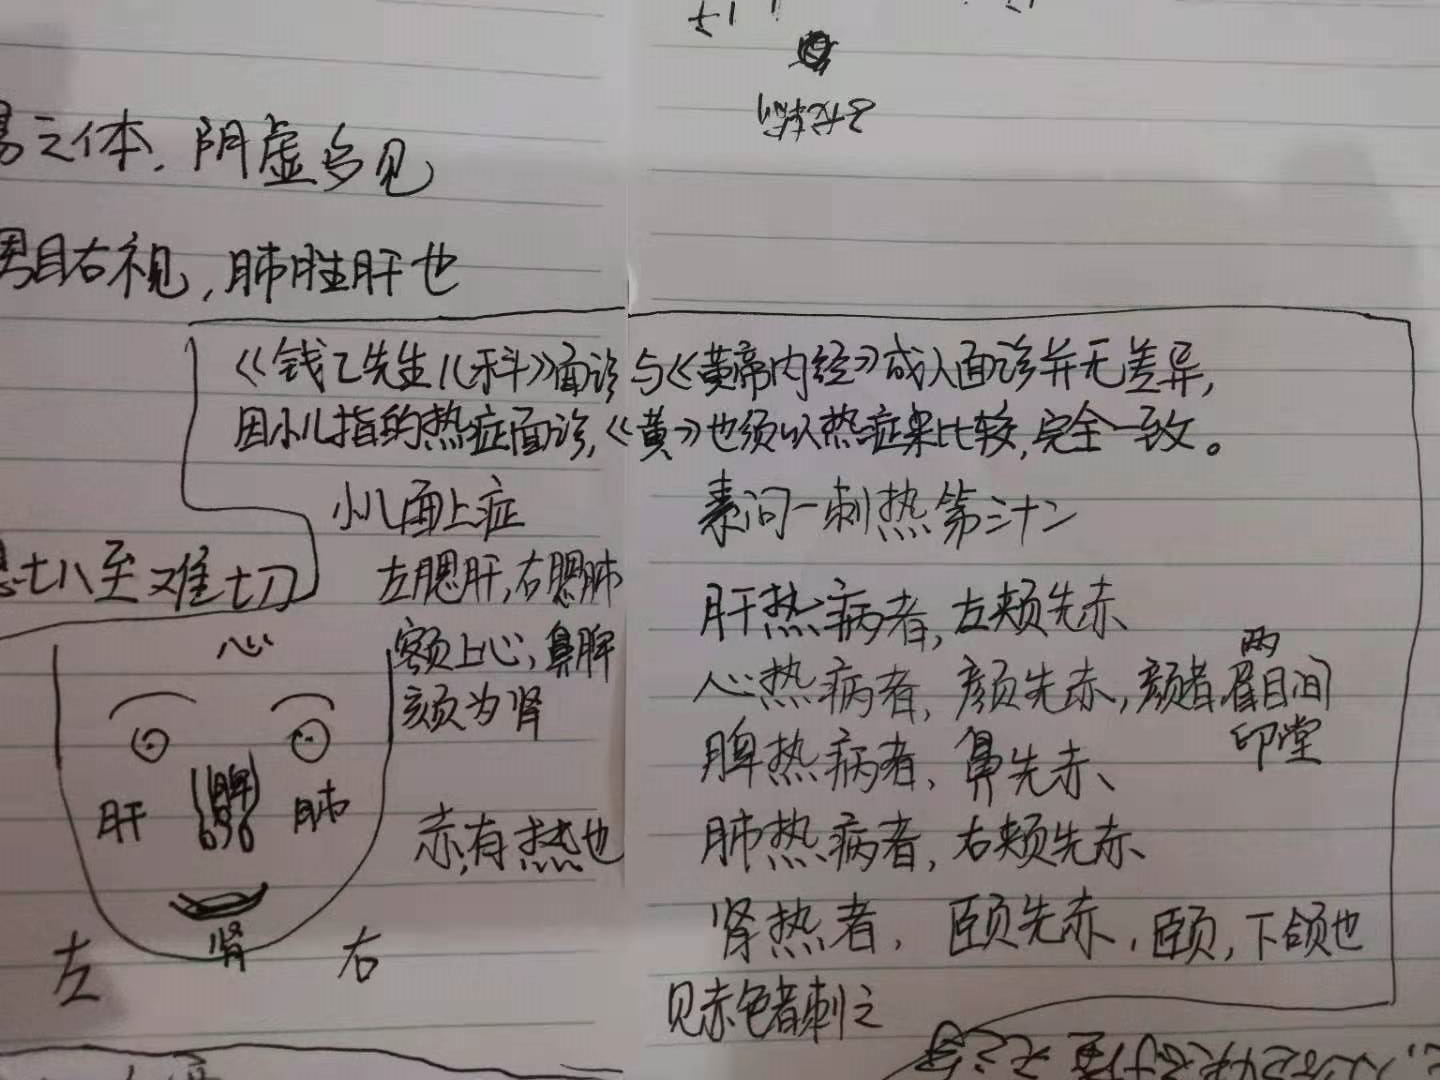 之体，阴虚多见
男目右视，肺胜肝也
《钱乙先生儿科》面诊与《黄帝内经》成人面诊并无差异，
因小儿指的热症面诊，《黄》也须以热症来比较，完全一致。
小儿面上症
左腮肝，右腮肺
额上心，鼻脾
颏为肾
赤，有热也
素问－刺热第三十二
肝热病者，左颊先赤、
心热病者，颜先赤，颜者两眉目间
印堂
脾热病者，鼻先赤、
肺热病者，右颊先赤、
肾热者，颐先赤，颐，下颌也
见赤色者刺之
七八至难切
心
肝
脾
肺
肾
左
右